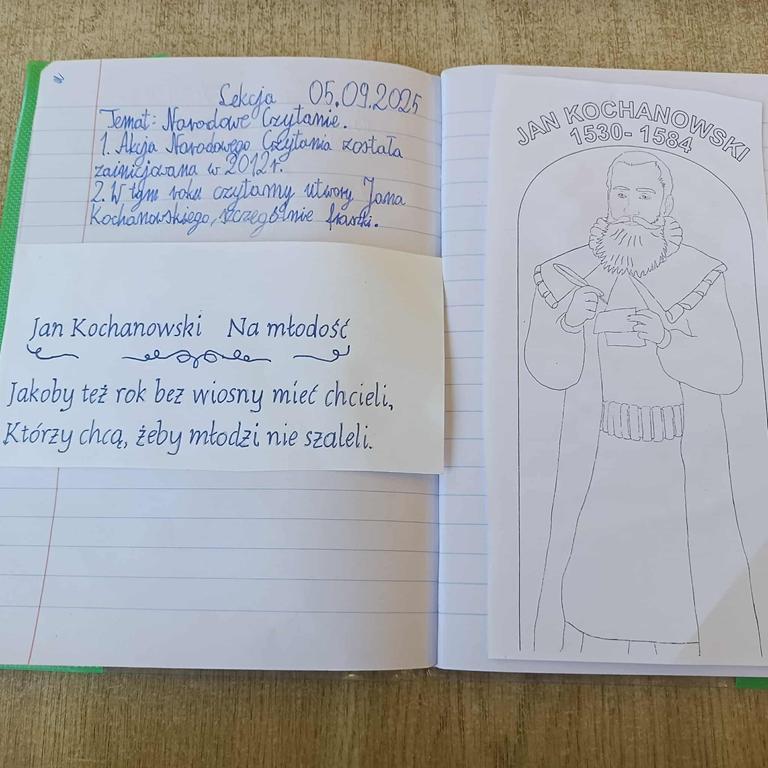 Lekcja 05.09.2025
Temat: Narodowe Czytanie.
1. Akcja Narodowego Czytania została
zainicjowana w 2012r.
2. W tym roku czytamy utwory Jana
Kochanowskiego, szczególnie fraszki.
Jan Kochanowski Na młodość
Jakoby też rok bez wiosny mieć chcieli,
Którzy chcą, żeby młodzi nie szaleli.
JAN KOCHANOWSKI
1530- 1584